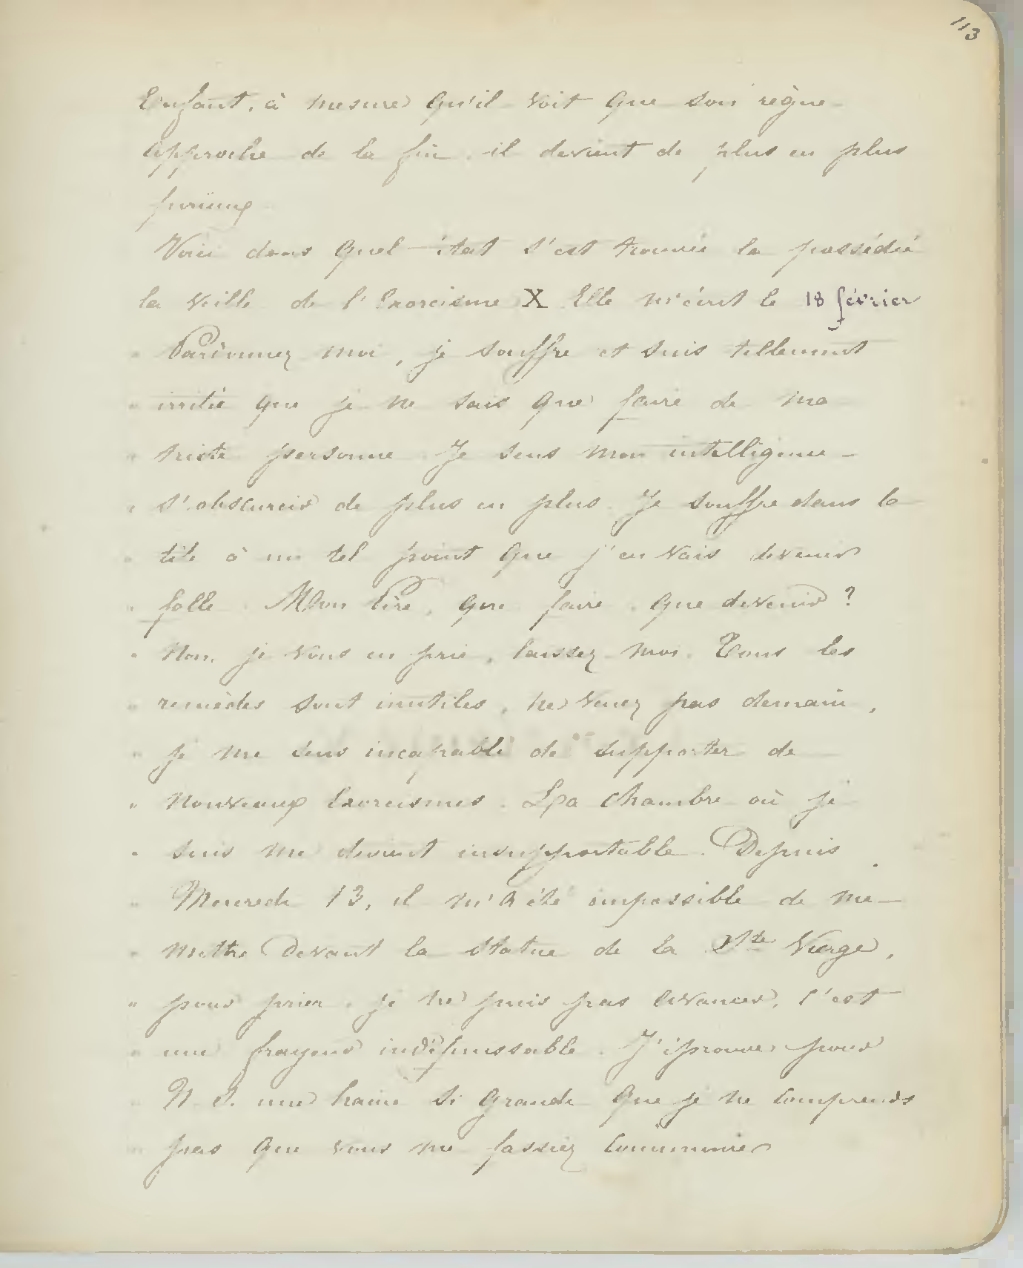 113
Enfant, à mesure qu'il voit que son règne
approche de la fin, il devient de plus en plus
furieux
Voici dans quel état s'est trouvée la possédée
la veille de l'Exorcisme X Elle m'écrit le 18 février
" Pardonnez moi, je souffre et suis tellement
" irritée que je ne sais que faire de ma
" triste personne Je sens mon intelligence
" s'obscurcir de plus en plus. Je souffre dans la
" tête à un tel point que j'en vais devenir
" folle. Mon Père, que faire, que devenir ?
" Non, je vous en prie, laissez moi. Tous les
" remèdes sont inutiles, ne venez pas demain,
" je me sens incapable de supporter de
" nouveaux Exorcismes. La chambre où je
" suis me devient insupportable. Depuis
" Mercredi 13, il m'a été impossible de me
" mettre devant la statue de la Ste Vierge,
" pour prier, je ne puis pas avancer, c'est
" une frayeur indéfinissable. J'éprouve pour
" N. S. une haine si grande que je ne comprends
" pas que vous me fassiez communier